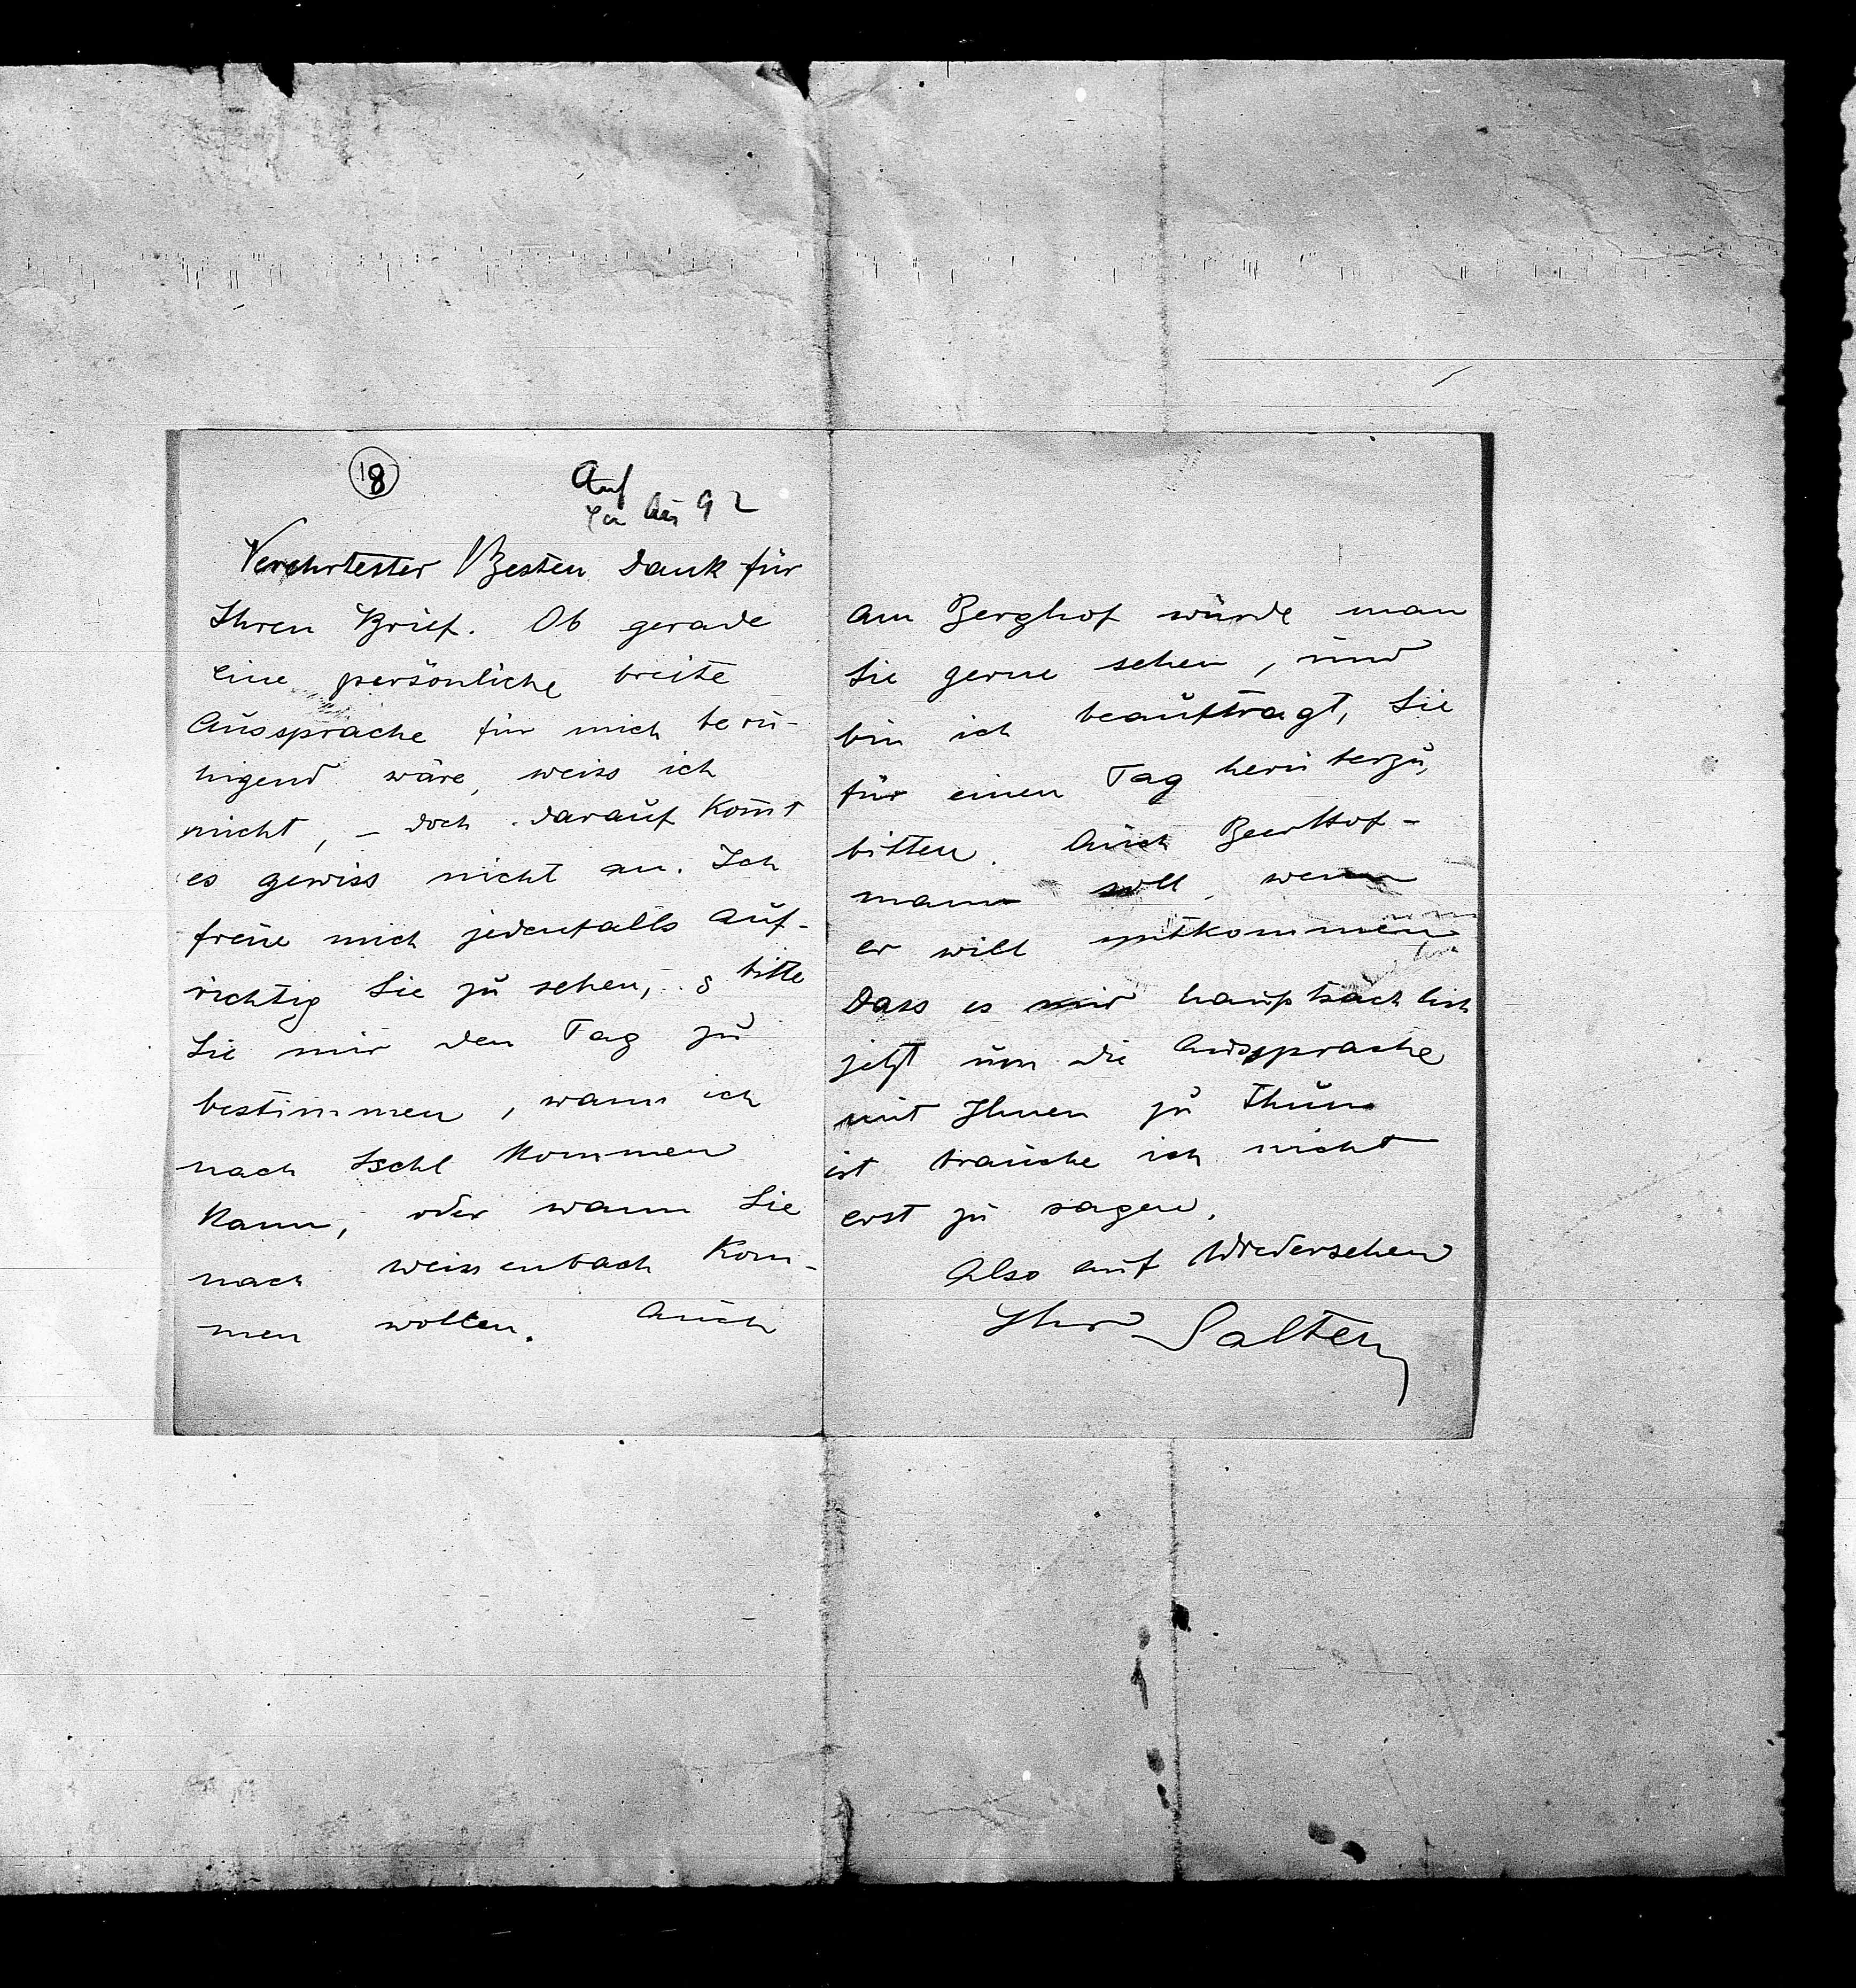 18
Auf
Au 92
Verehrtester Besten Dank für
Ihren Brief. Ob gerade
eine persönliche breite
Aussprache für mich beru-
higend wäre, weiss ich
nicht, – doch darauf kom̄t
es gewiss nicht an. Ich
freue mich jedenfalls auf-
richtig Sie zu sehen, & bitte
Sie mir den Tag zu
bestimmen, wann ich
nach Ischl kommen
kann, oder wann Sie
nach Weissenbach kom-
men wollen. Auch
am Berghof würde man
Sie gerne sehen, und
bin ich beauftragt, Sie
für einen Tag herüberzu-
bitten. Auch Beer Hof-
mann soll, wenn
er will mitkommen
Dass es mir hauptsächlich
jetzt um die Aussprache
mit Ihnen zu thun
ist brauche ich nicht
erst zu sagen.
Also auf Wiedersehen
Ihr Salten